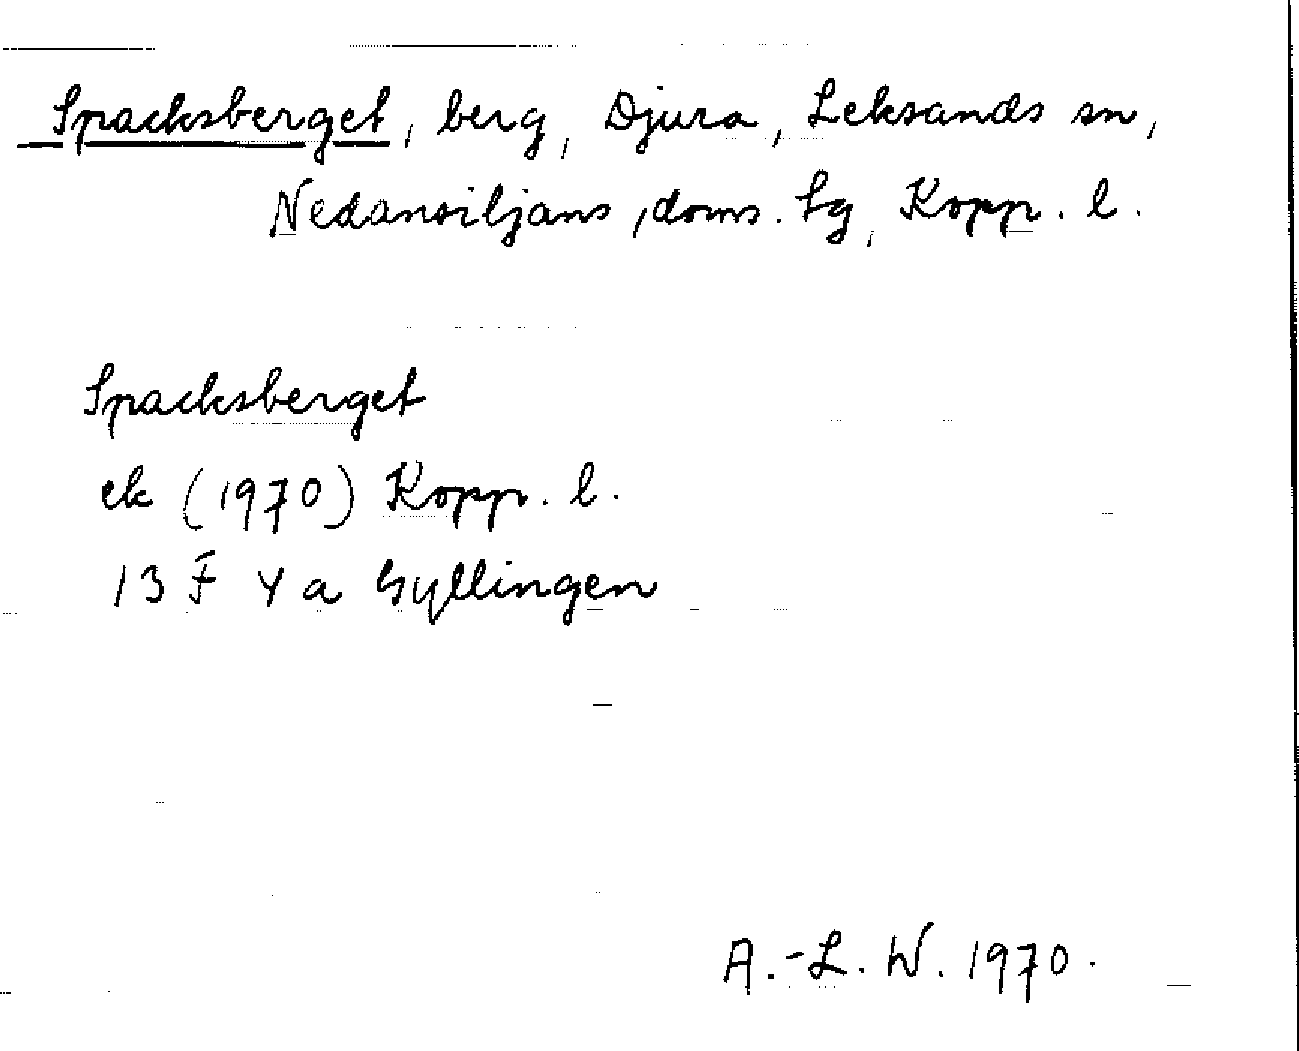 Spacksberget, berg, Djura, Leksands sn,
Nedansiljans, doms. tg, Kopp. l.
Spacksberget
ek (1970) Kopp. l.
13 F 4 a Gyllingen
A.-L. W. 1970.